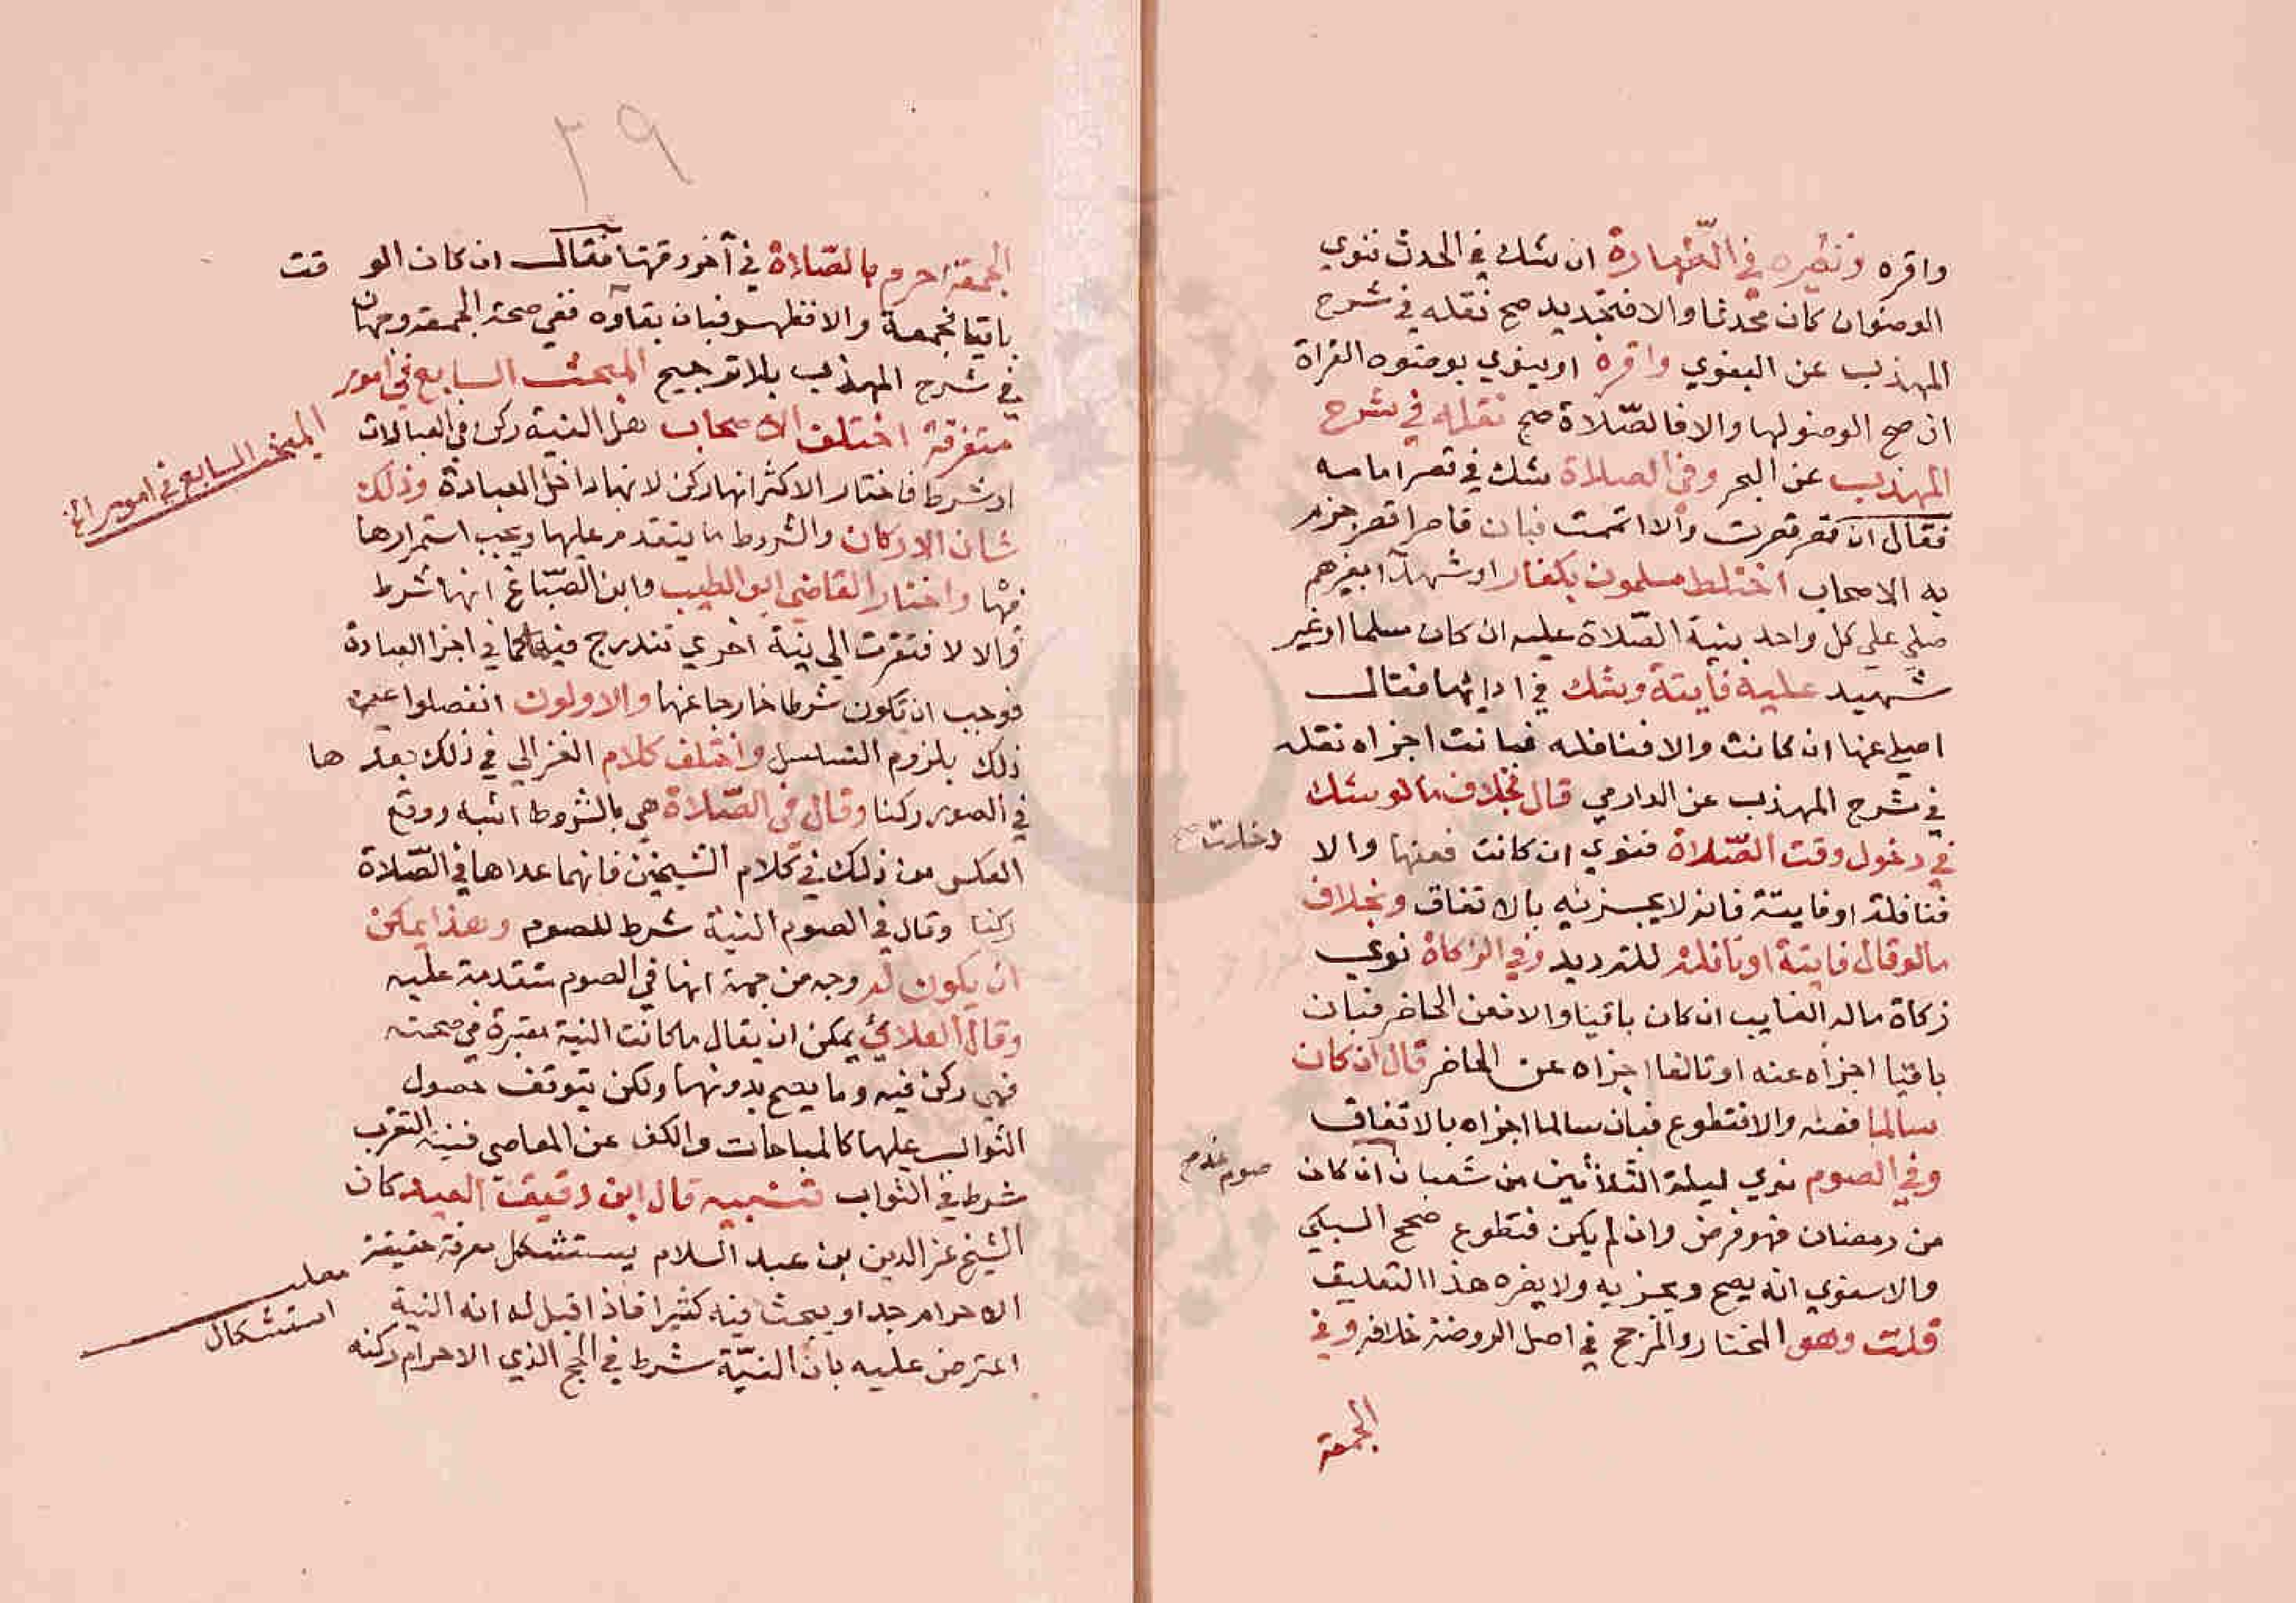 واقره ونظيره في الطهارة ان شك في الحدث فنوي
الوضوان كان محدثا والا فتجديد صح نقله في شرح
المهذب عن البغوي واقره او ينوي بوضوه القراة
ان صح الوضو لها والا فالصّلاة صح نقله في شرح
المهذب عن البحر وفي الصلاة شك في قصر امامه
فقال ان قصر قصرت والا اتممت فبان قاصرا قصر جزم
به الاصحاب اختلط مسلمون بكفار او شهدآ بغيرهم
صلي علي كل واحد بنية الصّلاة عليه ان كان مسلما او غير
شهيد عليه فايتة وشك في ادايها فقال
اصلي عنها ان كانت والا فنافلة فبانت اجزاه نقله
في شرح المهذب عن الدارمي قال بخلاف مالو شك
في دخول وقت الصّلاة فنوي ان كانت فعنها والا
دخلت صح
فنافلة او فايتة فانه لا يجزئه بالاتفاق وبخلاف
مالو قال فايتة او نافلة للترديد وفي الزكاة نوي
زكاة ماله الغايب ان كان باقيا والا فعن الحاضر فبان
باقيا اجزاه عنه او تالفا اجزاه عن الحاضر قال ان كان
سالما فعنه والا فتطوع فبان سالما اجزاه بالاتفاق
وفي الصوم نوي ليلة الثلاثين من شعبان ان كان
صوم غدم
من رمضان فهو فرض وان لم يكن فتطوع صحح السبكي
والاسنوي انه يصح ويجزيه ولا يضره هذا التعليق
قلت وهو المختار والمرجح في اصل الروضة خلافه وفي
الجمعة
٣٩
الجمعة احرم بالصّلاة في آخر وقتها فقال ان كان الو قت
باقيا فجمعة والا فظهر فبان بقآوه ففي صحة الجمعة وجهان
في شرح المهذب بلا ترجيح المبحث السابع في امور
المبحث السابع في امور الخ
متفرقة اختلف الاصحاب هل النية ركن في العبادات
او شرط فاختار الاكثر انها ركن لانها داخل العبادة وذلك
شان الاركان والشروط ما يتقدم عليها ويجب استمرارها
فيها واختار القاضي ابو الطيب وابن الصّبّاغ انها شرط
قالا لا فتقرت الي نية اخري تندرج فيها كما في اجزا العبادة
فوجب ان تكون شرطا خارجا عنها والاولون انفصلوا عن
ذلك بلزوم التسلسل واختلف كلام الغزالي في ذلك بعد ها
في الصوم ركنا وقال في الصّلاة هي بالشروط اشبه ووقع
العكس من ذلك في كلام الشيخين فانهما عداها في الصّلاة
ركنا وقال في الصوم النية شرط للصوم وهذا يمكن
ان يكون له وجه من جهة انها في الصوم متقدمة عليه
وقال العلائي يمكن ان يقال ما كانت النية معتبرة في صحته
فهي ركن فيه وما يصح بدونها ولكن يتوقف حصول
الثواب عليها كالمباحات والكف عن المعاصي فنية التقرب
شرط في الثواب تنبيه قال ابن دقيق العيد كان
الشيخ عز الدين بن عبد السلام يستشكل معرفة حقيقة
مطلب
استشكال
الاحرام جدا ويبحث فيه كثيرا فاذا قيل له انه النية
اعترض عليه بان النيّة شرط في الحج الذي الاحرام ركنه